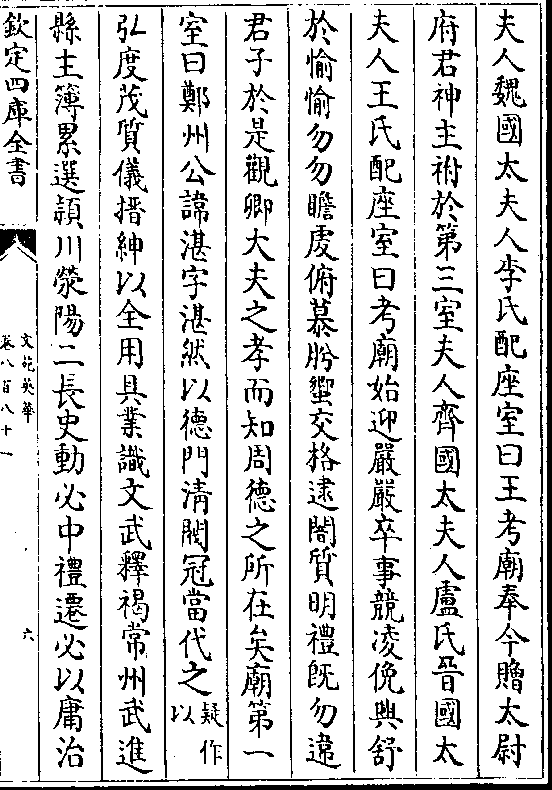 夫人魏國太夫人李氏配座室曰王考廟奉今贈太尉
府君神主祔於第三室夫人齊國太夫人盧氏晉國太
夫人王氏配座室曰考廟始迎嚴嚴卒事競凌俛興舒
於愉愉勿勿瞻虔俯慕肹蠁交格逮闇質明禮既勿違
君子於是觀卿大夫之孝而知周德之所在矣廟第一
室曰鄭州公諱湛字湛然以德門清閥冠當代之疑作以
弘度茂質儀搢紳以全用具業識文武釋褐常州武進
縣主簿累選潁川滎陽二長史動必中禮遷必以庸治
欽定四庫全書
文苑英華
卷八百八十一
六